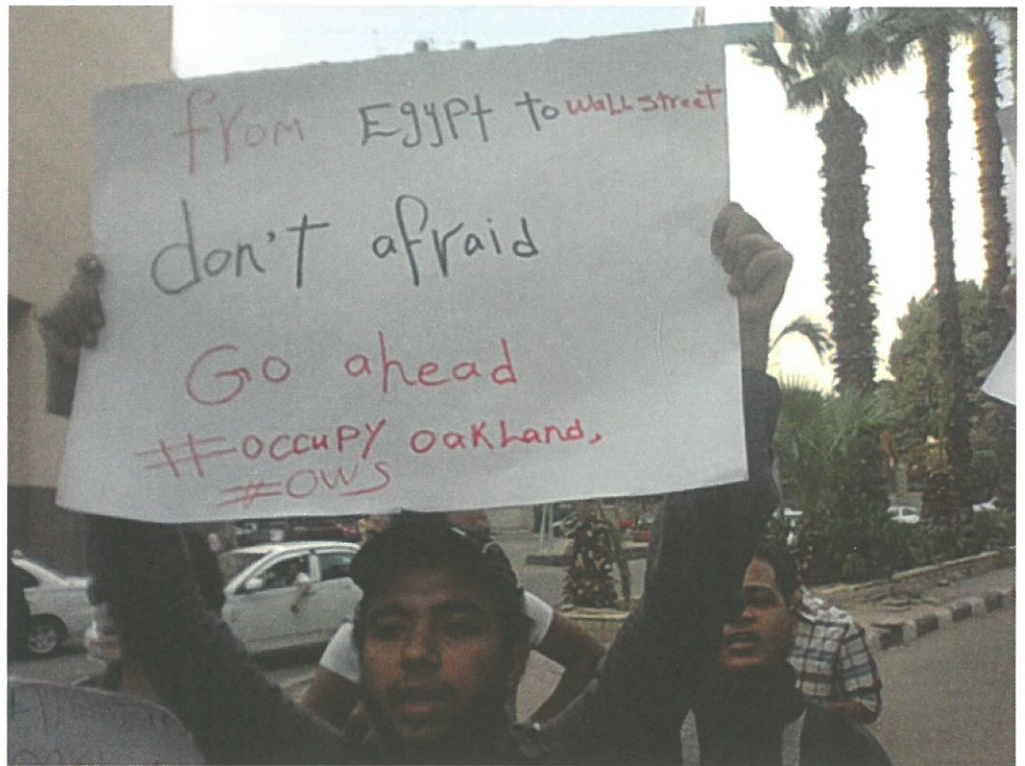 from Egypt to Wall street
don't afraid
Go ahead
#occupy oakland,
#OWS